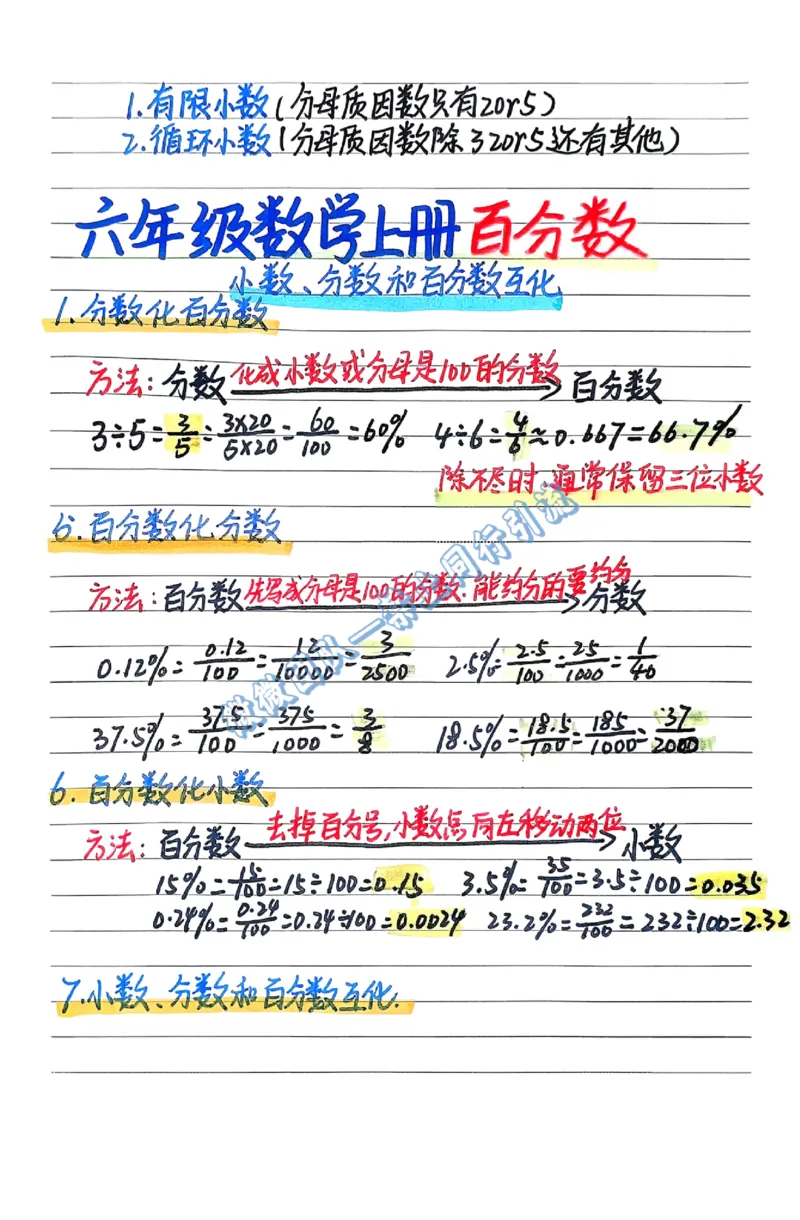 1.有限小数(分母质因数只有2or5)
2.循环小数(分母质因数除了2or5还有其他)
六年级数学上册百分数
小数、分数和百分数互化
1.分数化百分数
方法:分数 化成小数或分母是100的分数 百分数
3÷5=3/5=3×20/5×20=60/100=60% 4÷6=4/6≈0.667=66.7%
除不尽时,通常保留三位小数
6.百分数化分数
方法:百分数 先写成分母是100的分数.能约分的要约分 分数
0.12%=0.12/100=12/10000=3/2500 2.5%=2.5/100=25/1000=1/40
37.5%=37.5/100=375/1000=3/8 18.5%=18.5/100=185/1000=37/2000
6.百分数化小数
方法:百分数 去掉百分号,小数点向左移动两位 小数
15%=15/100=15÷100=0.15 3.5%=35/100=3.5÷100=0.035
0.24%=0.24/100=0.24÷100=0.0024 23.2%=232/100=232÷100=2.32
7.小数、分数和百分数互化.